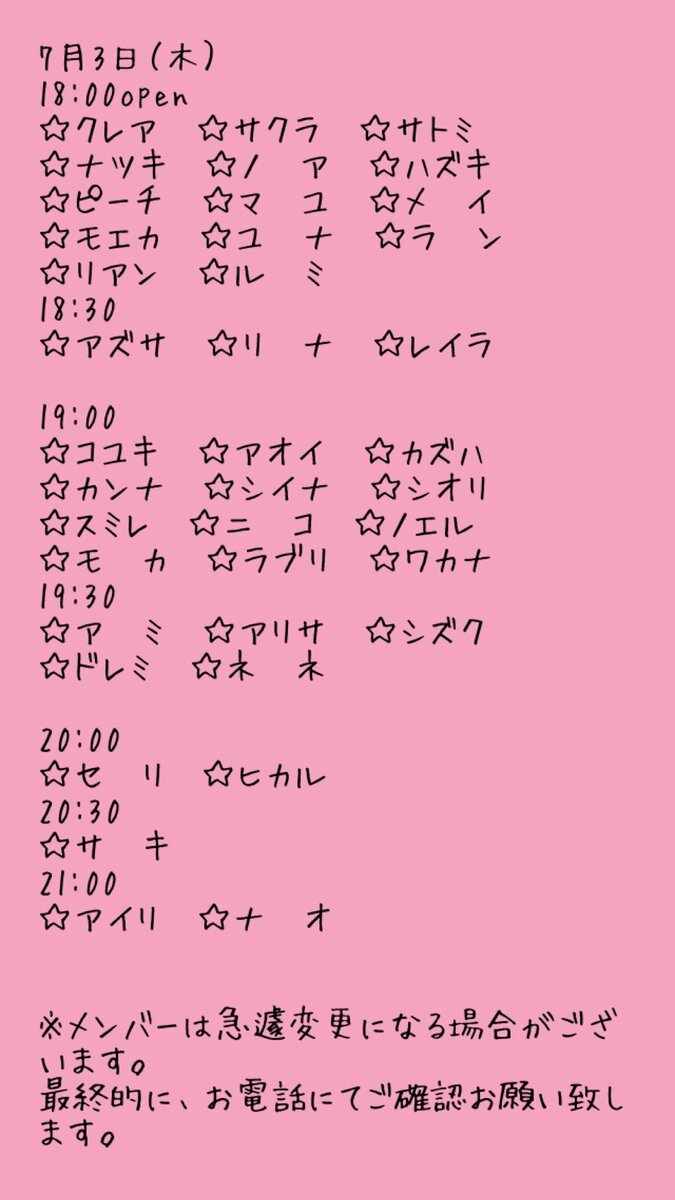 7月3日(木)
18:00open
☆クレア　☆サクラ　☆サトミ
☆ナツキ　☆ノ　ア　☆ハズキ
☆ピーチ　☆マ　ユ　☆メ　イ
☆モエカ　☆ユ　ナ　☆ラ　ン
☆リアン　☆ル　ミ
18:30
☆アズサ　☆リ　ナ　☆レイラ
19:00
☆コユキ　☆アオイ　☆カズハ
☆カンナ　☆シイナ　☆シオリ
☆スミレ　☆ニ　コ　☆ノエル
☆モ　カ　☆ラブリ　☆ワカナ
19:30
☆ア　ミ　☆アリサ　☆シズク
☆ドレミ　☆ネ　ネ
20:00
☆セ　リ　☆ヒカル
20:30
☆サ　キ
21:00
☆アイリ　☆ナ　オ
※メンバーは急遽変更になる場合がござ
います。
最終的に、お電話にてご確認お願い致し
ます。